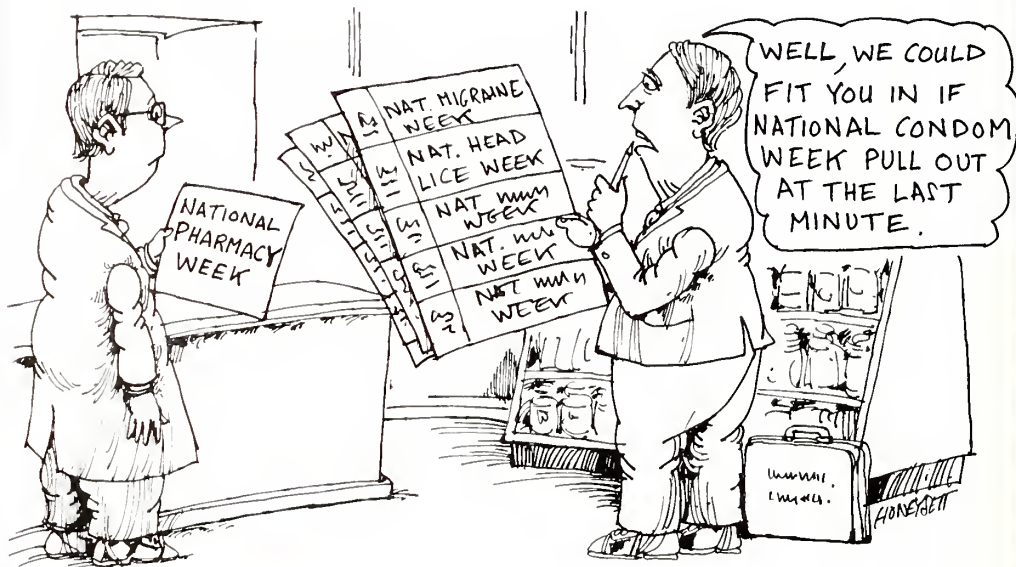 NATIONAL
PHARMACY
WEEK
NAT. MIGRAINE
WEEK
NAT. HEAD
LICE WEEK
NAT
WEEK
NAT.
WEEK
NAT
WEEK
WELL, WE COULD
FIT YOU IN IF
NATIONAL CONDOM
WEEK PULL OUT
AT THE LAST
MINUTE.
HONEYSETT